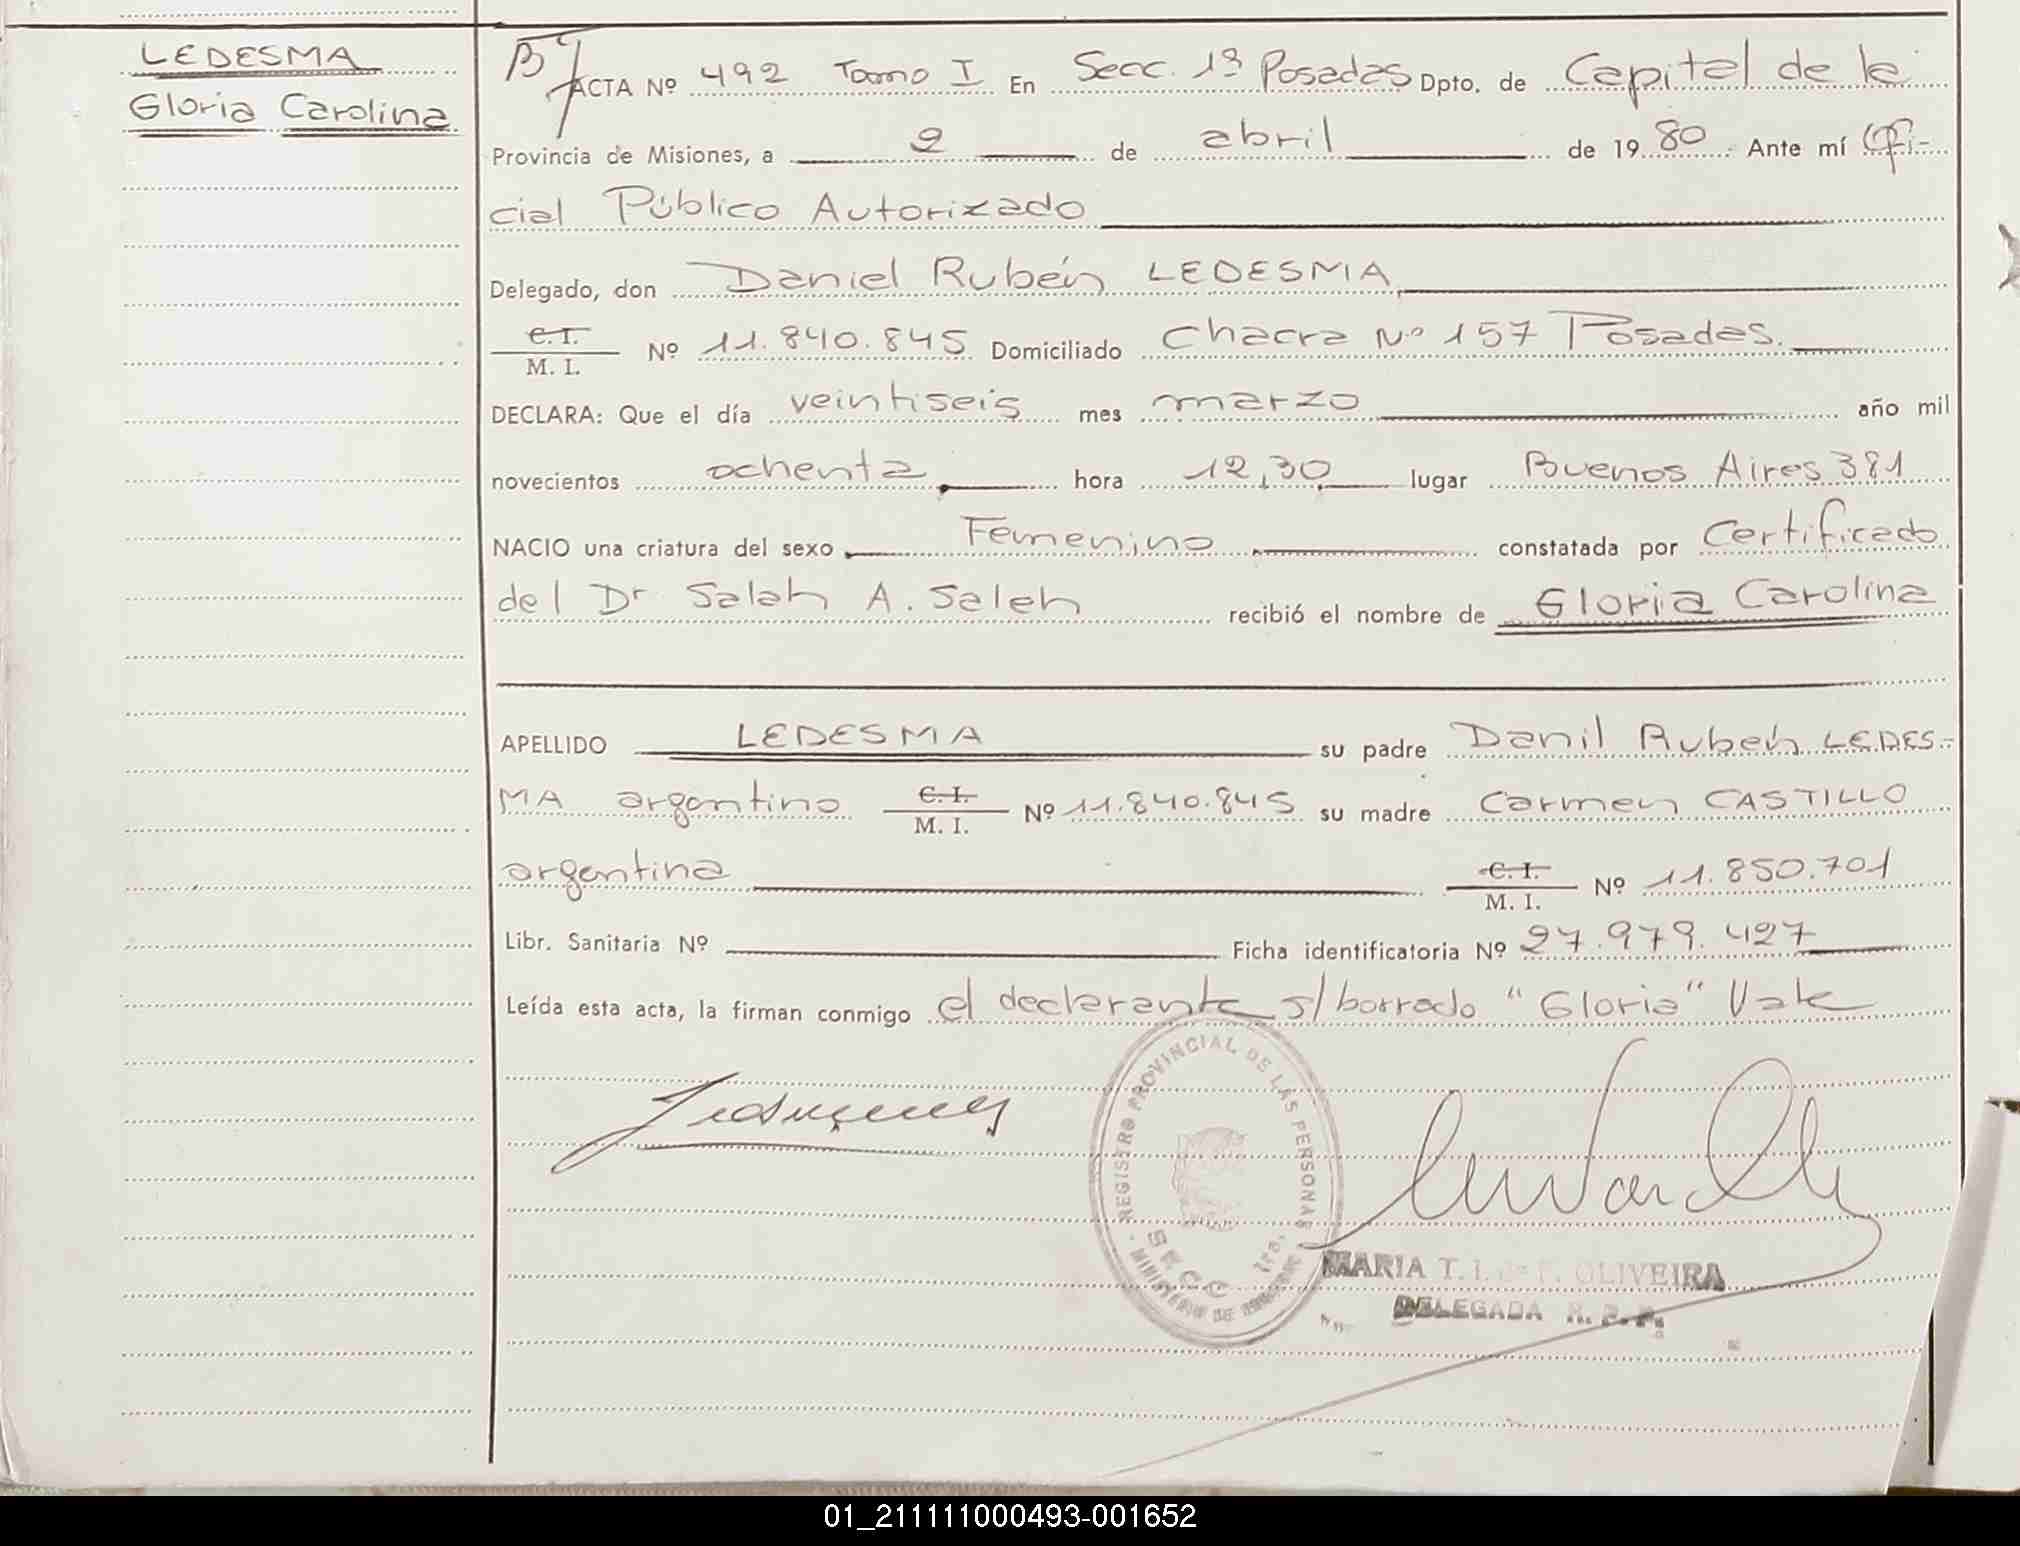 LEDESMA
Gloria Carolina
ACTA Nº 492 Tomo I En Secc. 1ª Posadas Dpto. de Capital de la
Provincia de Misiones, a 2 de abril de 1980 Ante mí Ofi-
cial Público Autorizado
Delegado, don Daniel Rubén LEDESMA
C. I.
M. I. Nº 11.840.845 Domiciliado Chacra Nº 157 Posadas.
DECLARA: Que el día veintiseis mes marzo año mil
novecientos ochenta hora 12,30 lugar Buenos Aires 381
NACIO una criatura del sexo Femenino constatada por Certificado
del Dr Salah A. Saleh recibió el nombre de Gloria Carolina
APELLIDO LEDESMA su padre Danil Rubén LEDES-
MA argentino C. I. M. I. Nº 11.840.845 su madre Carmen CASTILLO
argentina C. I. M. I. Nº 11.850.701
Libr. Sanitaria Nº Ficha identificatoria Nº 27.979.427
Leída esta acta, la firman conmigo el declarante s/borrado "Gloria" Vale
REGISTRO PROVINCIAL DE LAS PERSONAS
SECC 1ra.
MINISTERIO DE
MARIA T. I. de F. OLIVEIRA
DELEGADA R. P. P.
01_211111000493-001652